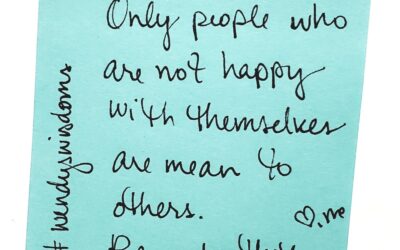 Only people who
are not happy
with themselves
are mean to
others.
♡, me
#wendyswisdoms